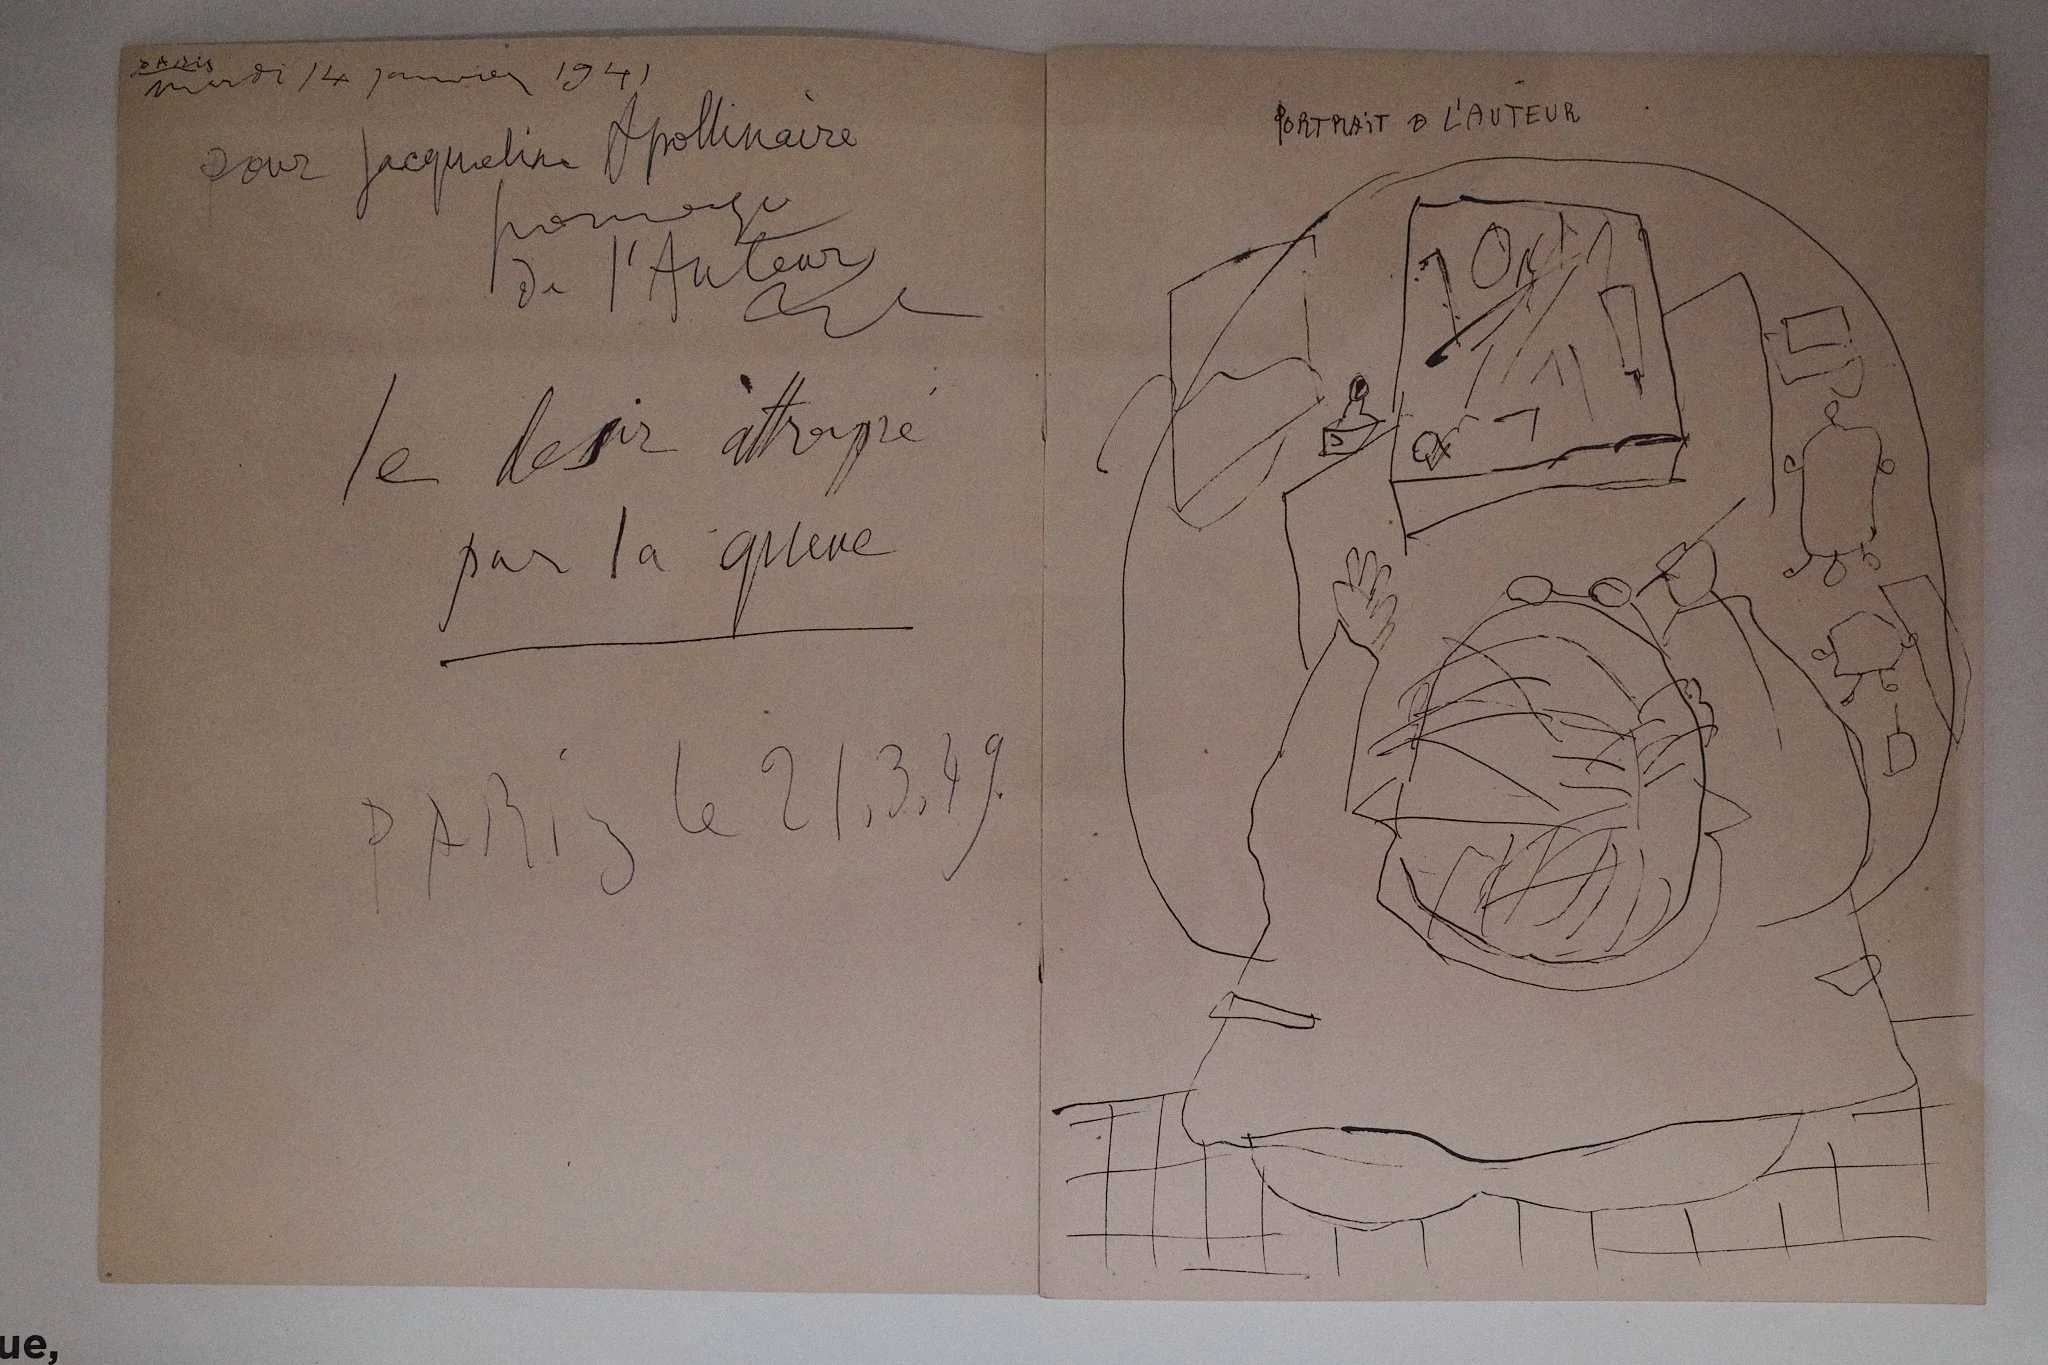 PARIS
mardi 14 janvier 1941
pour Jacqueline Apollinaire
hommage
de l'Auteur
le desir attrapé
par la queue
PARiS le 21.3.49.
PORTRAiT D L'AUTEUR
ue,